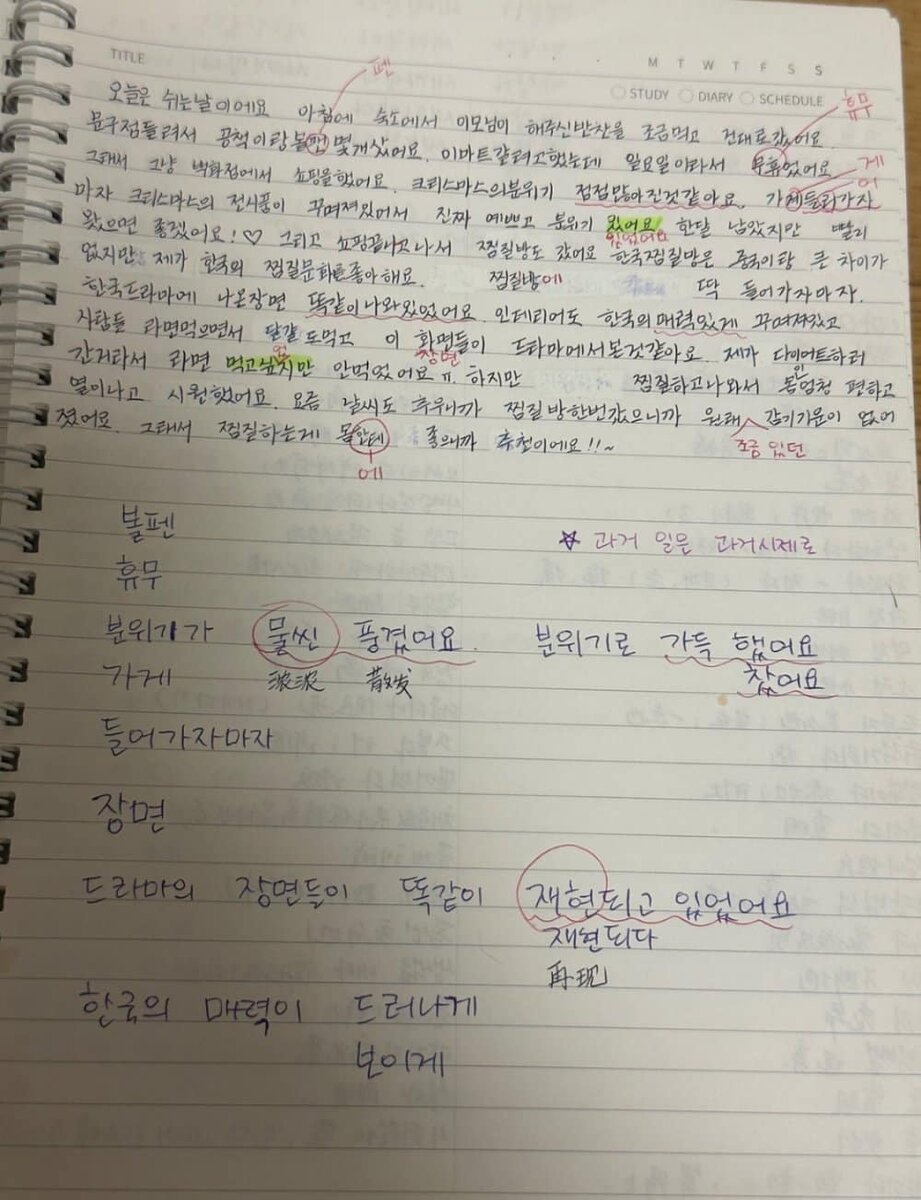 TITLE
M T W T F S S
STUDY DIARY SCHEDULE
펜
휴무
오늘은 쉬는날이에요 아침에 숙소에서 이모님이 해주신반찬을 조금먹고 건대로갔어요
문구점들려서 공책이랑볼팬 몇개샀어요. 이마트갈려고했는데 일요일이라서 무휴었어요
게
그래서 그냥 백화점에서 쇼핑을했어요. 크리스마스의분위기 점점많아진것같아요. 가게들러가자
어
마자 크리스마스의 전시품이 꾸며져있어서 진짜 예쁘고 분위기 있어요 한달 남았지만 빨리
있었어요
왔으면 좋겠어요!♡ 그리고 쇼핑끝나고나서 찜질방도 갔어요 한국찜질방은 중국이랑 큰 차이가
없지만 제가 한국의 찜질문화를좋아해요. 찜질방에 딱 들어가자마자.
한국드라마에 나온장면 똑같이나와있었어요. 인테리어도 한국의매력있게 꾸며져있고
사람들 라면먹으면서 달걀도먹고 이 화면들이 드라마에서본것같아요. 제가 다이어트하러
장면
간거라서 라면 먹고싶지만 안먹었어요ㅠ. 하지만 찜질하고나와서 몸엄청 편하고
열이나고 시원했어요. 요즘 날씨도 추우니까 찜질방한번갔으니까 원래 감기기운이 없어
조금 있던
졌어요. 그래서 찜질하는게 몸한테 좋으니까 추천이에요!!~
에
볼펜
☆ 과거 일은 과거시제로
휴무
분위기가 물씬 풍겼어요. 분위기로 가득 했어요
가게 散发 찼어요
들어가자마자
장면
드라마의 장면들이 똑같이 재현되고 있었어요
재현되다
再现
한국의 매력이 드러나게
보이게